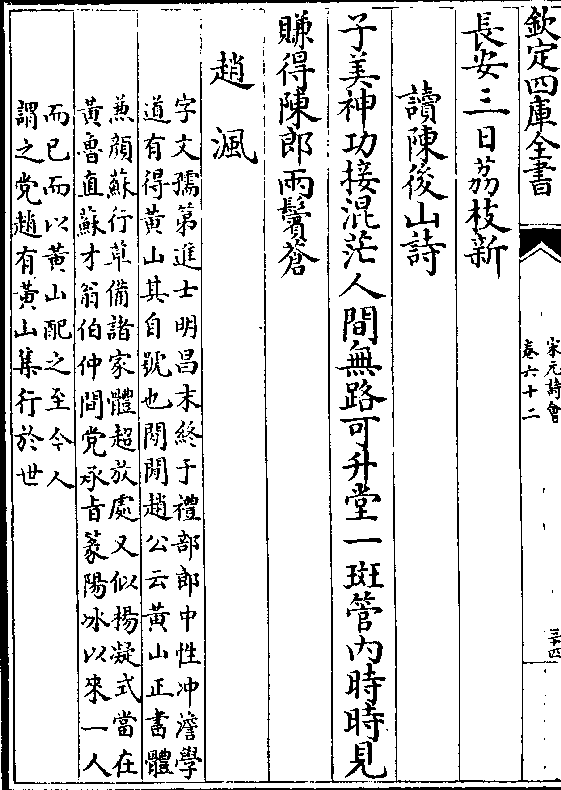 欽定四庫全書
宋元詩會
卷六十二
三十四
長安三日荔枝新
讀陳後山詩
子美神功接混茫人間無路可升堂一斑管內時時見
賺得陳郎兩鬢蒼
趙渢
字文孺第進士明昌末終于禮部郎中性冲澹學
道有得黄山其自號也閑閑趙公云黄山正書體
兼顔蘇行草備諸家體超放處又似楊凝式當在
黄魯直蘇才翁伯仲間党承旨篆陽冰以來一人
而已而以黄山配之至今人
謂之党趙有黄山集行於世